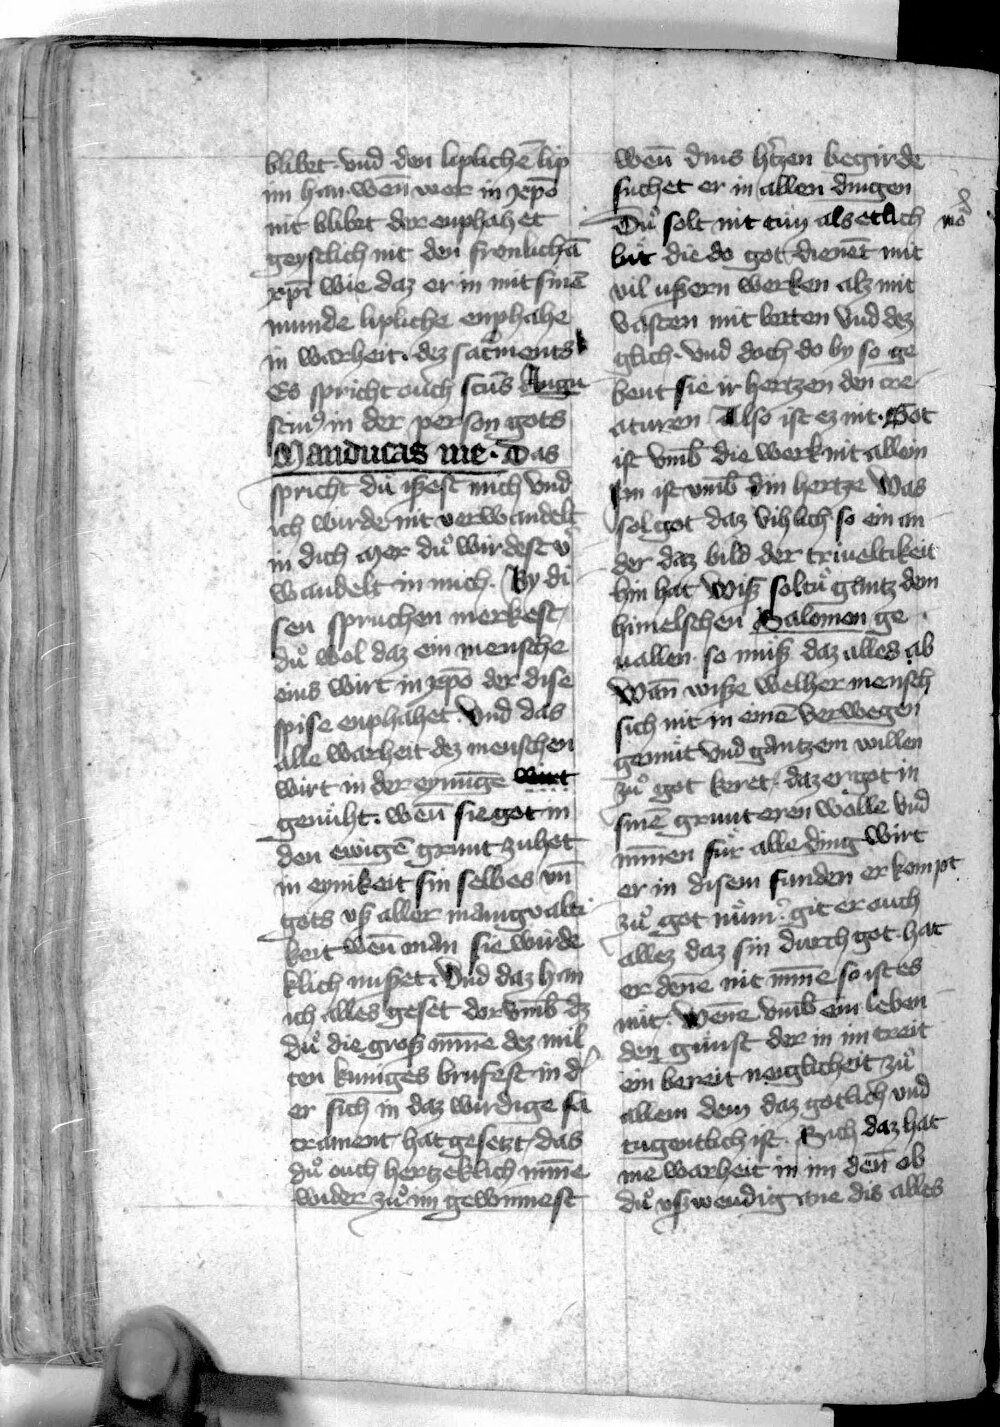 blibet · vnd den liplichē lip
im han · wen̄ wer in xp̄o
nit blibet der enphahet
geystlich nit den fronlichā
xp̄i wie daz er in mit sinē
munde lipliche enphahe
in warheit · dez sacͬments
Es spricht ouch sctūs Augu
stinꝰ in der person gots
Manducas me · Das
spricht du issest mich vnd
ich wurde nit verwandelt
in dich mer duͦ wirdest v͛
wandelt in mich · By di
sen spruchen merkest
duͦ wol daz ein mensche
eins wirt in xp̄o der dise
spise enphahet · Vnd das
alle warheit dez menschen
wirt in der eynūge
genuͤht · wen̄ sie got in
den ewigē grunt zuhet
in eynikeit sin selbes vn̄
gots vß aller manigvalti
keit wen̄ man sie wirde
klich nusset · Vnd daz han
ich alles geset dor vm̄b dz
duͦ die groß mīne dez mil
ten kuniges brufest in d͛
er sich in daz wirdige sa
crament hat gesetzt das
duͦ ouch hertzeklich mīne
wider zuͦ im gewinnest
wen̄ dins h͛tzen begirde
suchet er in allen dingen
Duͦ solt nit tun als etlich
luͤt die do got dienēt mit
vil ussern werken alz mit
vasten mit betten vnd dez
glich · vnd doch do by so ge
bent sie ir hertzen den cre
aturen Also ist ez nit · Got
ist vm̄b die werk nit allein
Im ist vm̄b din hertze Was
sol got daz vihlich so ein an
der daz bild der triueltikeit
hin hat wiss soltuͤ gantz dem
himelschen Salomon ge
uallen · so muͤß daz alles ab
Wan̄ wisse welher mensch
sich nit in einē verwegen
gemuͤt vnd gantzem willen
zuͦ got keret · daz er got in
sinē grunt eren woͤlle vnd
mīnen fuͤr alle ding wirt
er in disem funden er kompt
zuͦ got nuͤm͛ · git er ouch
allez daz sin durch got · hat
er denē nit mīne so ist es
nit · Wenē vm̄b ein leben
den gunst der in im treit
ein bereit neiglicheit zuͦ
allem dem daz gotlich vnd
tugentlich ist · Rich daz hat
me warheit in im den̄ ob
duͦ vßwendig ane dis alles